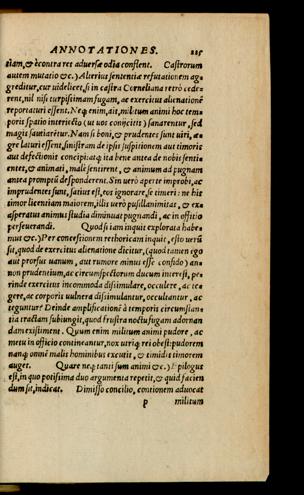 ANNOTATIONES. 225
tiam, & econtra ret aduersæ odia conflent. Castrorum
autem mutatio &c.) Alterius sententiæ refutationem ag-
greditur, cur uidelicet, si in castra Corneliana retrò cede-
rent, nil nisi turpissimam fugam, ac exercitus alienationē
reportaturi essent. Neq; enim, ait, militum animi hoc tem
poris spatio interiecto (ut uos conijcitis) sanarentur, sed
magis sauciarētur. Nam si boni, & prudentes sunt uiri, æ-
gre laturi essent, sinistram de ipsis suspitionem aut timoris
aut defectionis concipi: atq; ita bene antea de nobis sentiē
entes, & animati, malè sentirent, & animum ad pugnam
antea promptū desponderent. Sin uerò apertè improbi, ac
imprudentes sunt, satius est, eos ignorare, se timeri: ne hic
timor licentiam maiorem, illis uerò pusillanimitas, & ex-
asperatus animus studia diminuat pugnandi, ac in officio
perseuerandi. Quod si iam inquit explorata habe-
mus &c.) Per concessionem rethoricam inquit, esto uerū
sit, quod de exercitus alienatione dicitur, (quod tamen ego
aut prorsus uanum, aut rumore minus esse confido) an-
non prudentium, ac circumspectorum ducum interest, pe-
rinde exercitus incommoda dissimulare, occulere, ac te-
gere, ac corporis uulnera dissimulantur, occultantur, ac
teguntur? Deinde amplificationē à temporis circumstan-
tia tractam subiungit, quod frustra noctu fugam adornan
dam existiment. Quum enim militum animi pudore, ac
metu in officio contineantur, nox utriq; rei obest: pudorem
nanq; omnē malis hominibus excutit, & timidis timorem
auget. Quare neq; tanti sum animi &c.) Epilogus
est, in quo potissima duo argumenta repetit, & quid facien
dum sit, indicat. Dimisso concilio, contionem aduocat
p militum